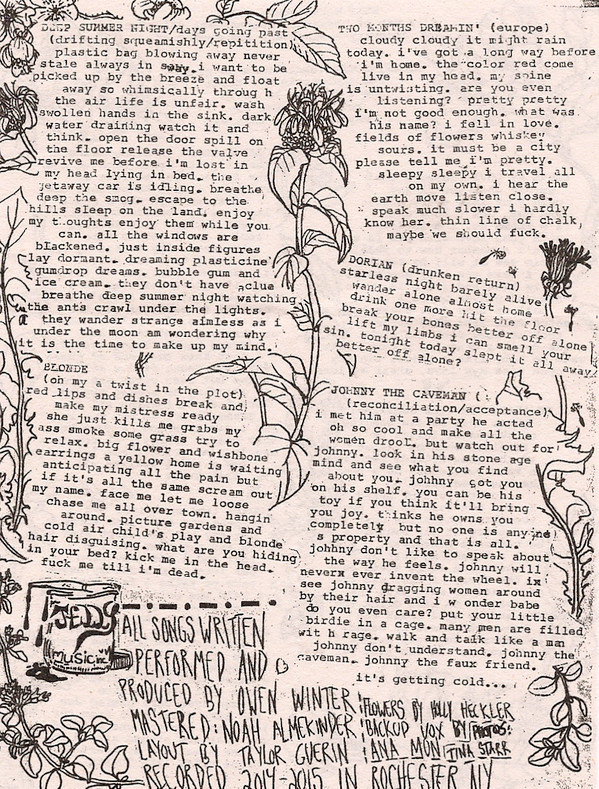 DEEP SUMMER NIGHT/days going past
(drifting squeamishly/repitition)
plastic bag blowing away never
stale always in sway. i want to be
picked up by the breeze and float
away so whimsically throug h
the air life is unfair. wash
swollen hands in the sink. dark
water draining watch it and
think. open the door spill on
the floor release the valve
revive me before i'm lost in
my head lying in bed. the
getaway car is idling. breathe
deep the smog. escape to the
hills sleep on the land. enjoy
my thoughts enjoy them while you
can. all the windows are
blackened. just inside figures
lay dormant. dreaming plasticine
gumdrop dreams. bubble gum and
ice cream. they don't have aclue
breathe deep summer night watching
the ants crawl under the lights.
they wander strange aimless as i
under the moon am wondering why
it is the time to make up my mind.
BLONDE
(oh my a twist in the plot)
red lips and dishes break and
make my mistress ready
she just kills me grabs my
ass smoke some grass try to
relax. big flower and wishbone
earrings a yellow home is waiting
anticipating all the pain but
if it's all the same scream out
my name. face me let me loose
chase me all over town. hangin
around. picture gardens and
cold air child's play and blonde
hair disguising. what are you hiding
in your bed? kick me in the head.
fuck me till i'm dead.
TWO MONTHS DREAMIN' (europe)
cloudy cloudy it might rain
today. i've got a long way before
i'm home. the color red come
live in my head. my spine
is untwisting. are you even
listening? pretty pretty
i'm not good enough. what was
his name? i fell in love.
fields of flowers whiskey
sours. it must be a city
please tell me i'm pretty.
sleepy sleepy i travel all
on my own. i hear the
earth move listen close.
speak much slower i hardly
know her. thin line of chalk,
maybe we should fuck.
DORIAN (drunken return)
starless night barely alive
wander alone almost home
drink one more hit the floor
break your bones better off alone
lift my limbs i can smell your
sin. tonight today slept it all away
better off alone?
JOHNNY THE CAVEMAN (
(reconciliation/acceptance)
i met him at a party he acted
oh so cool and make all the
women drool. but watch out for
johnny. look in his stone age
mind and see what you find
about you. johnny got you
on his shelf. you can be his
toy if you think it'll bring
you joy. thinks he owns you
completely but no one is anyone
s property and that is all.
johhny don't like to speak about
the way he feels. johnny will
neverx ever invent the wheel. ix
see johnny dragging women around
by their hair and i w onder babe
do you even care? put your little
birdie in a cage. many men are filled
wit h rage. walk and talk like a man
johnny don't understand. johnny the
caveman. johnny the faux friend.
it's getting cold...
JELLY
MUSIC inc
ALL SONGS WRITTEN
PERFORMED AND
PRODUCED BY OWEN WINTER
MASTERED: NOAH ALMEKINDER
LAYOUT BY TAYLOR GUERIN
RECORDED 2014-2015 IN ROCHESTER NY
FLOWERS BY HOLLY HECKLER
BACKUP VOX BY
ANA MON
PHOTOS:
TINA STARR